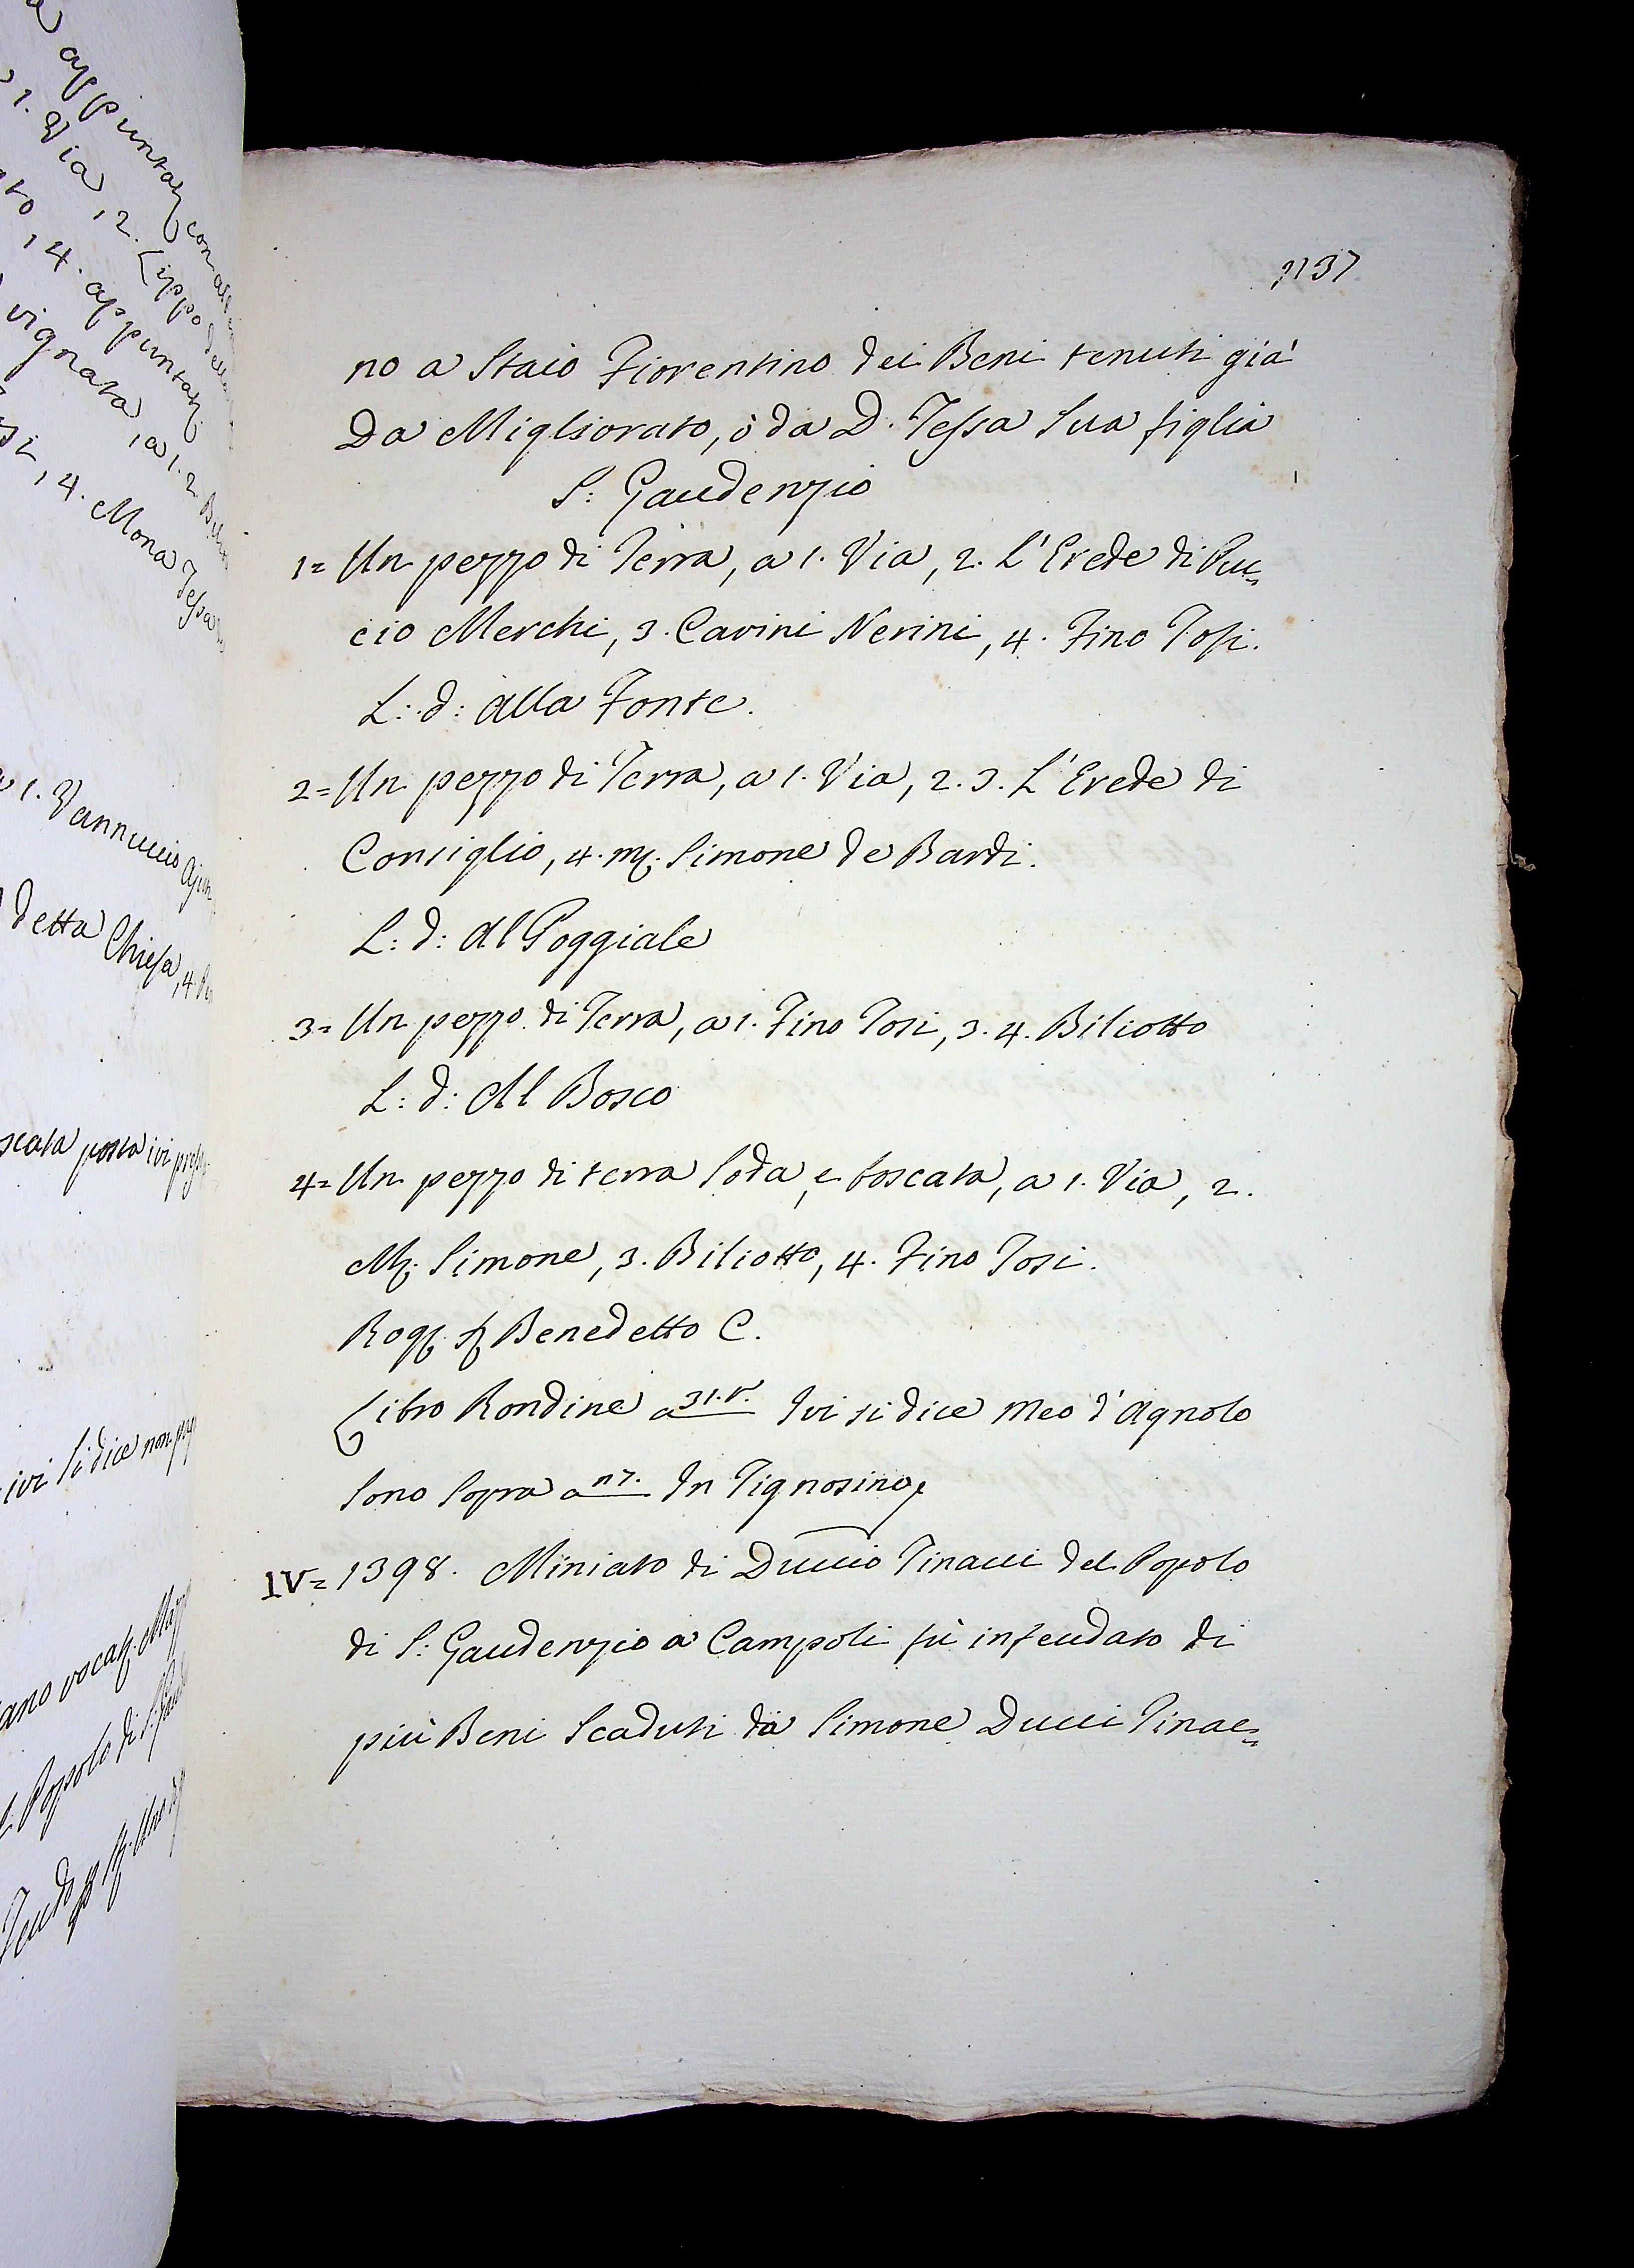 appuntaz con
1. Via, 2. Lippo della
4. appuntaz
vignata, a 1. 2.
4. Mona Tessa
1. Vannuccio
detta Chiesa, 4.
posta ivi
ivi si dice non
vocat.
Popolo di S.
1137
no a Staio Fiorentino dei Beni tenuti già
Da Migliorato, ò da D. Tessa Sua figlia
S: Gaudenzio
1= Un pezzo di Terra, a 1. Via, 2. L'Erede di Puc=
cio Merchi, 3. Carini Nerini, 4. Fino Tosi.
L: d: alla Fonte.
2= Un pezzo di Terra, a 1. Via, 2. 3. L'Erede di
Consiglio, 4. M. Simone de Bardi.
L: d: Al Poggiale
3= Un pezzo di Terra, a 1. Fino Tosi, 3. 4. Biliotto
L: d: Al Bosco
4= Un pezzo di terra Soda, e boscata, a 1. Via, 2.
M. Simone, 3. Biliotto, 4. Fino Tosi.
Rog. S. Benedetto C.
Libro Rondine a 31. v. Ivi si dice Meo d'Agnolo
Sono Sopra a n7. In Tignosino
IV= 1398. Miniato di Duccio Tinacci del Popolo
di S: Gaudenzio a Campoli fù infeudato di
più Beni Scaduti da Simone Ducci Tinac=